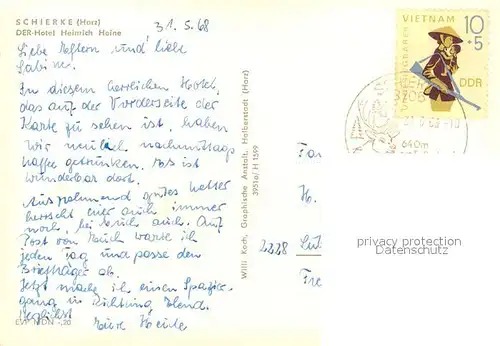 SCHIERKE (Harz)
DER-Hotel Heinrich Heine
31. 5. 68
Liebe Eltern und liebe
Sabine.
In diesem herrlichen Hotel,
das auf der Vorderseite der
Karte zu sehen ist, haben
wir neulich nachmittags
Kaffee getrunken. Es ist
wunderbar dort.
gutes Wetter
herrscht hier auch immer
noch, bei Euch auch. Auf
Post von Euch warte ich
jeden Tag und passe den
Briefträger ab.
Jetzt mache ich einen Spazier-
gang in Richtung Elend.
Herzlichst
Eure Heide
EVP MDN -,20
Willi Koch, Graphische Anstalt, Halberstadt (Harz)
3951a/H 1599
VIETNAM
10
+5
DDR
3706
640m
Fam
H.
2228
Fre
privacy protection
Datenschutz